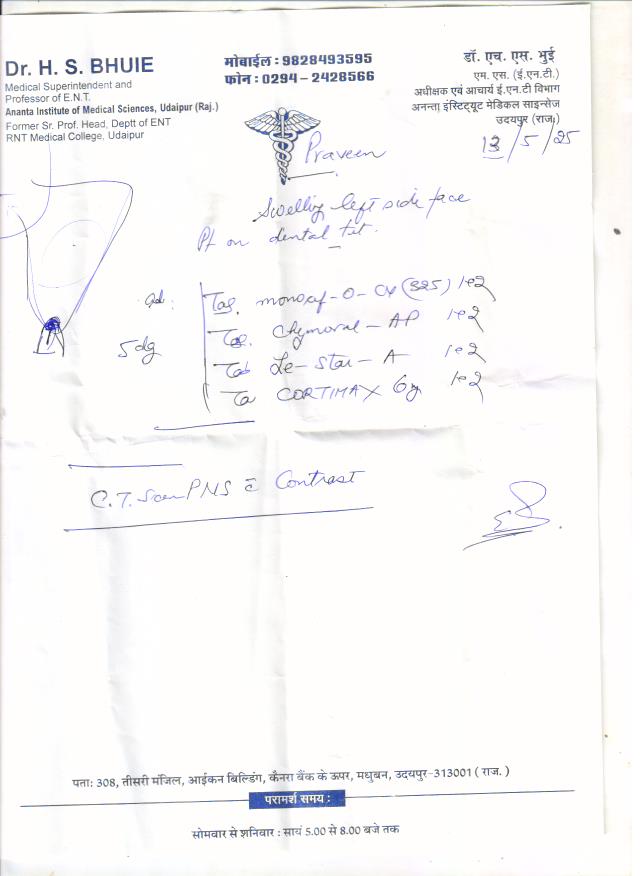 Dr. H. S. BHUIE
Medical Superintendent and
Professor of E.N.T.
Ananta Institute of Medical Sciences, Udaipur (Raj.)
Former Sr. Prof. Head, Deptt of ENT
RNT Medical College, Udaipur
मोबाईल : 9828493595
फोन : 0294 - 2428566
डॉ. एच. एस. भुई
एम. एस. (ई.एन.टी.)
अधीक्षक एवं आचार्य ई.एन.टी विभाग
अनन्ता इंस्टिट्यूट मेडिकल साइन्सेज
उदयपुर (राज.)
13/5/25
Praveen
Swelling left side face
Pt on dental
Tab. (325) 1e2
Chymoral - AP 1e2
Tab Le-Star-A 1e2
CORTIMAX 6 1e2
C.T. Scan PNS c̄ Contrast
पता: 308, तीसरी मंजिल, आईकन बिल्डिंग, कैनरा बैंक के ऊपर, मधुबन, उदयपुर-313001 ( राज. )
परामर्श समय :
सोमवार से शनिवार : सायं 5.00 से 8.00 बजे तक